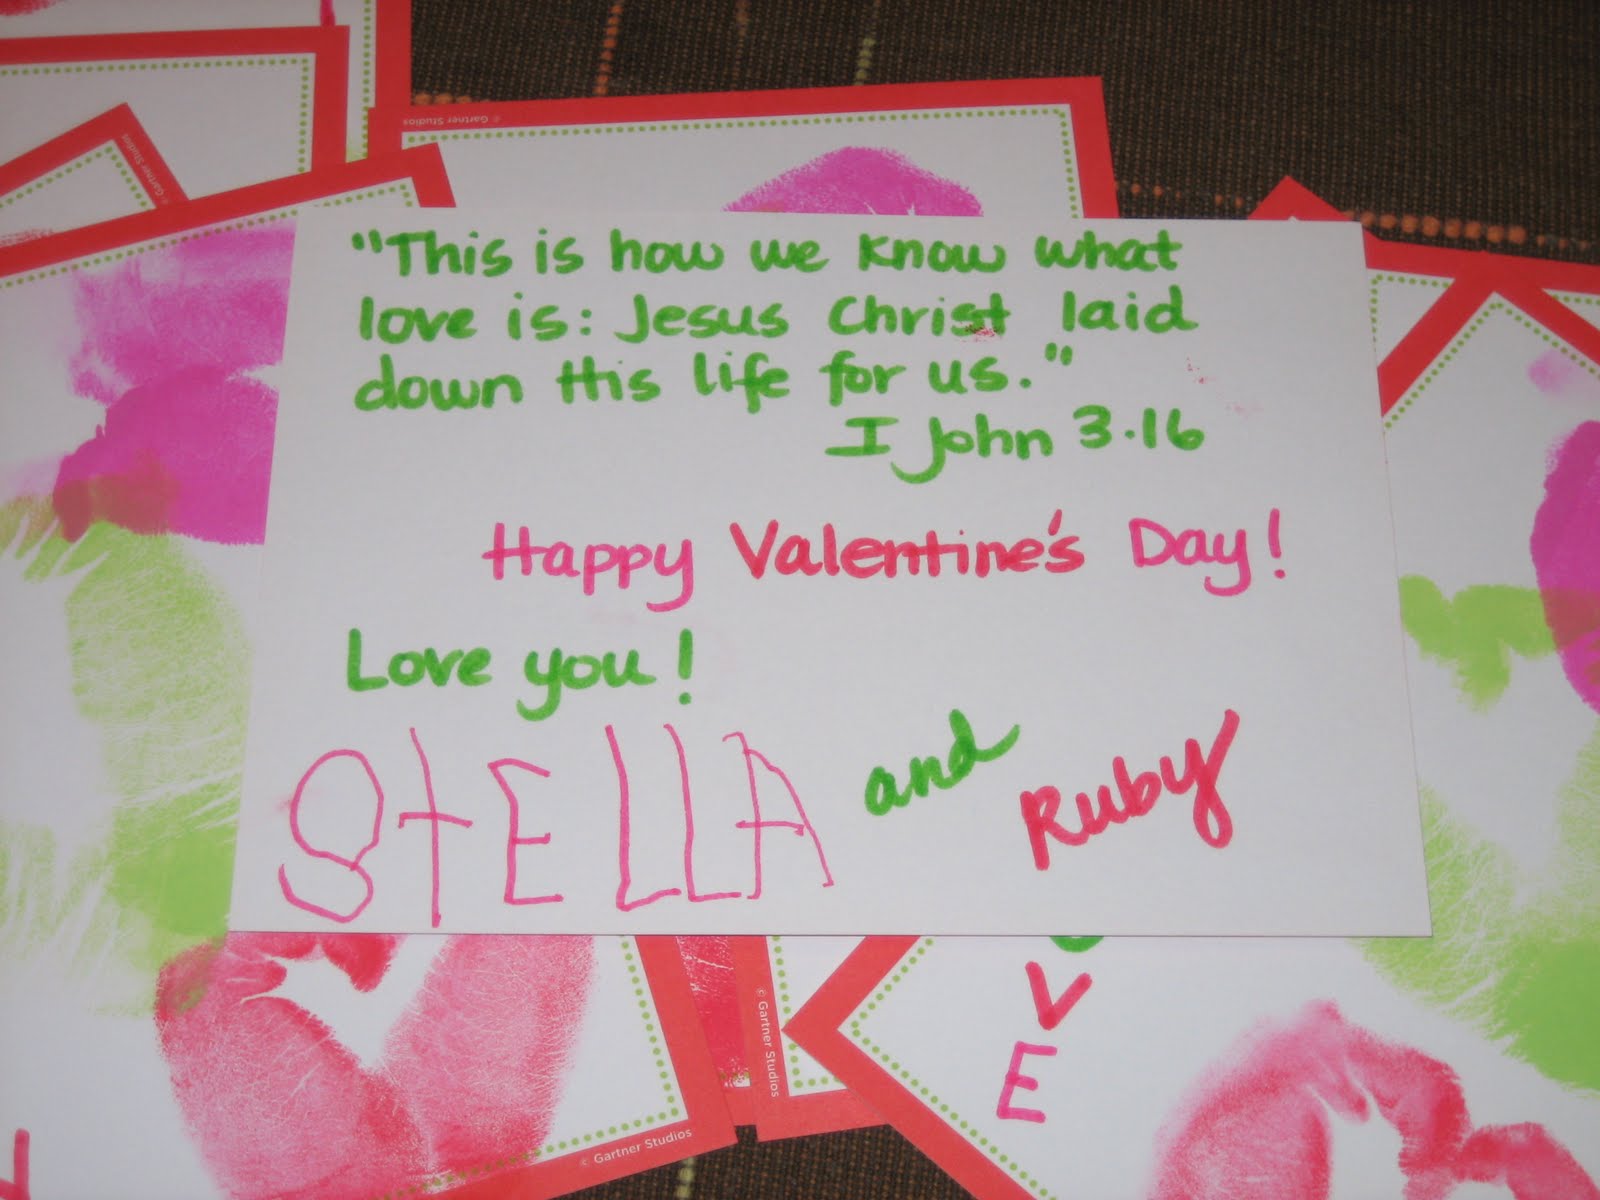 © Gartner Studios
© Gartner Studios
"This is how we know what
love is: Jesus Christ laid
down His life for us."
I John 3.16
Happy Valentine's Day!
Love you!
STELLA and Ruby
V
E
© Gartner Studios
© Gartner Studios